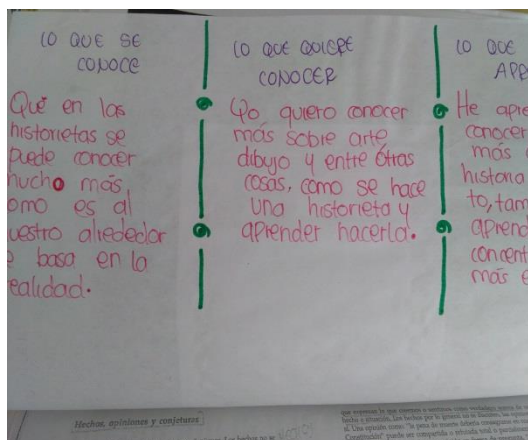 LO QUE SE
CONOCE
Qué en las
historietas se
puede conocer
mucho más
omo es al
uestro alrededor
e basa en la
ealidad.
LO QUE QUIERE
CONOCER
Yo, quiero conocer
más sobre arte,
dibujo y entre otras
cosas, como se hace
una historieta y
aprender hacerla.
LO QUE
APR
He apre
conocer
más
historia
to, tam
aprend
concent
más e
Hechos, opiniones y conjeturas